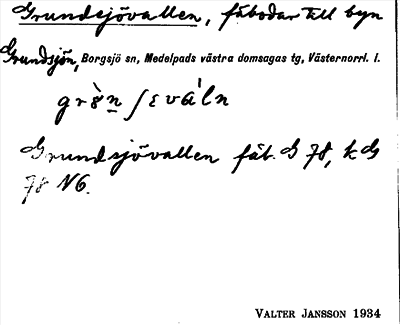 Grundsjövallen, fäbodar till byn
Grundsjön, Borgsjö sn, Medelpads västra domsagas tg, Västernorrl. l.
Grundsjövallen fäb. G 78, k G
78 N6.
VALTER JANSSON 1934